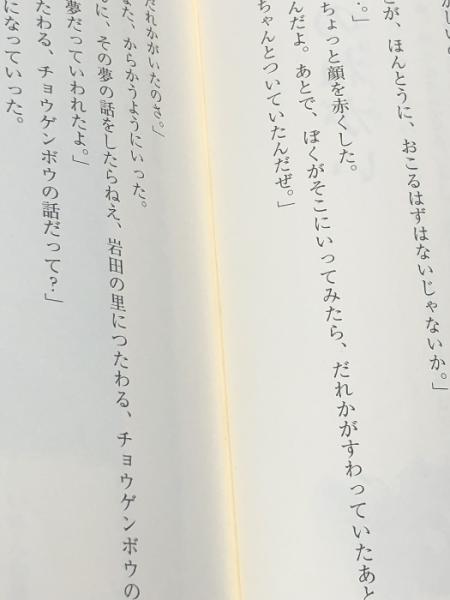 かしい。
とが、ほんとうに、おこるはずはないじゃないか。」
…。」
ちょっと顔を赤くした。
んだよ。あとで、ぼくがそこにいってみたら、だれかがすわっていたあと
ちゃんとついていたんだぜ。」
だれかがいたのさ。」
また、からかうようにいった。
に、その夢の話をしたらねえ、岩田の里につたわる、チョウゲンボウの
夢だっていわれたよ。」
たわる、チョウゲンボウの話だって？」
になっていった。